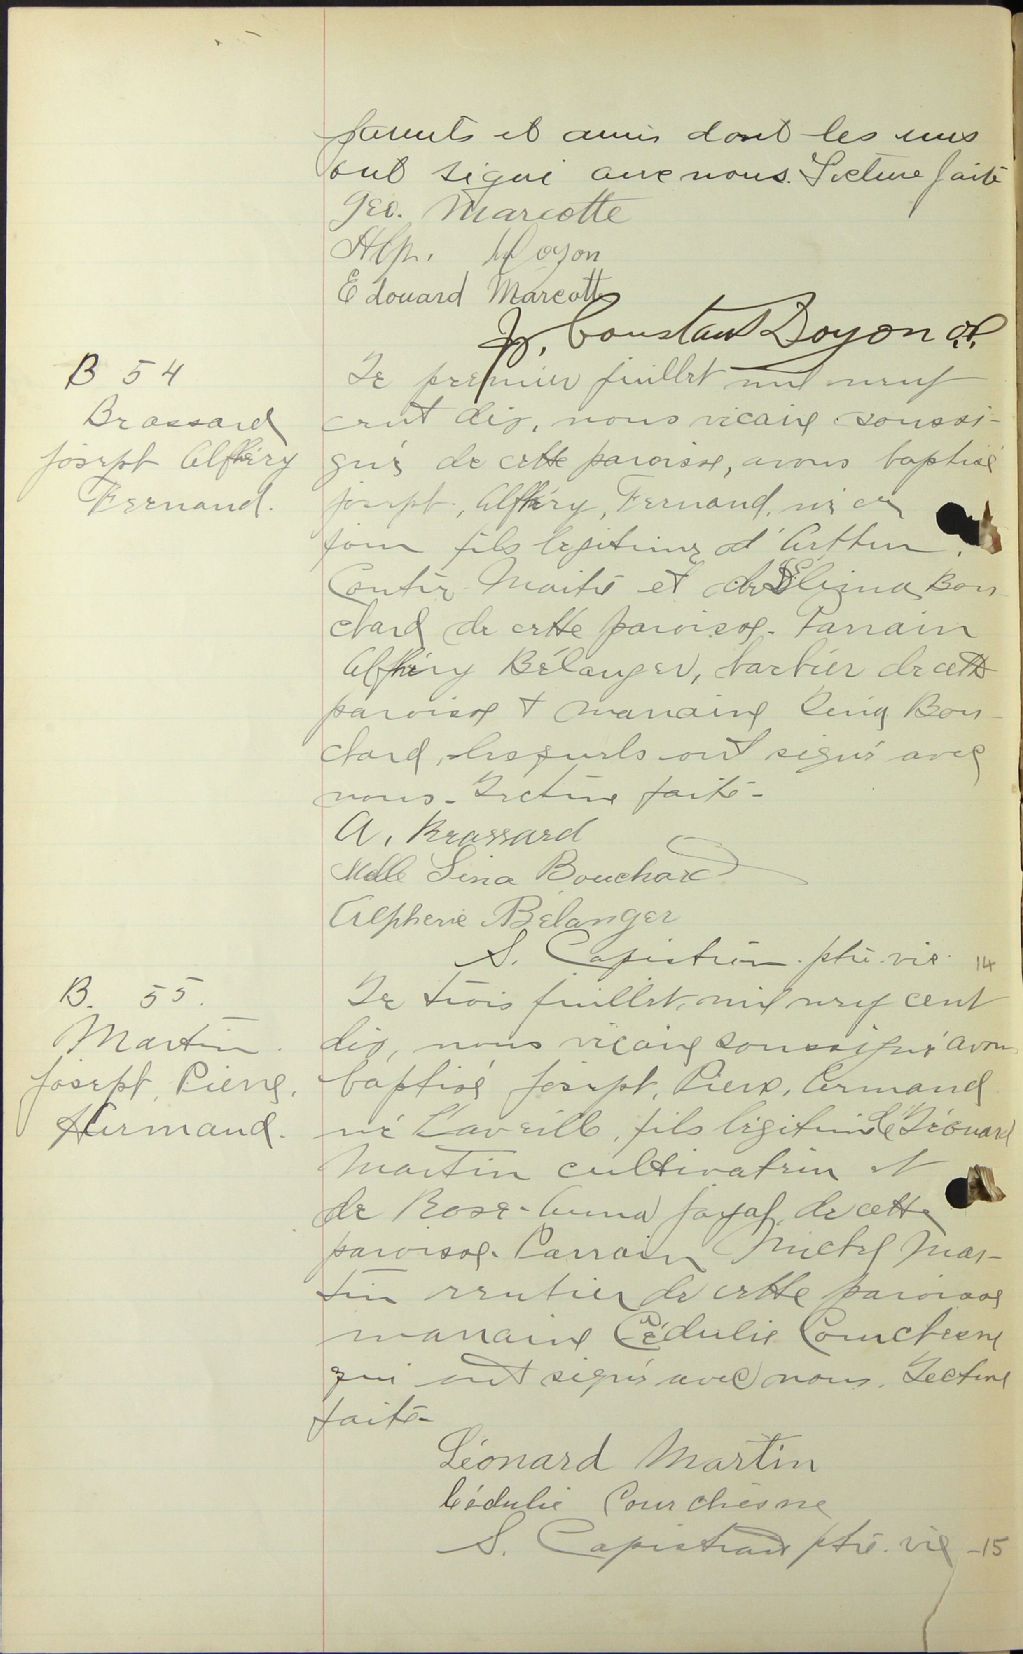 parents et amis dont les uns
ont signé avec nous. Lecture faite
Geo. Marcotte
Alp. Doyon
Edouard Marcotte
fr. Constant Doyon o.p.
B 54
Brassard
Joseph Alphéry
Fernand.
Le premier juillet mil neuf
cent dix, nous vicaire soussi-
gné de cette paroisse, avons baptisé
Joseph, Alphéry, Fernand, né ce
jour fils légitime d'Arthur
et de Elzina Bou
chard de cette paroisse. Parrain
Alphéry Bélanger, barbier de cette
paroisse & marraine Lina Bou-
chard, lesquels ont signé avec
nous. Lecture faite-
A. Brassard
Melle Lina Bouchard
Alpherie Bélanger
S. Capistran ptre. vic. 14
B. 55.
Martin
Joseph, Pierre,
Armand.
Le trois juillet, mil neuf cent
dix, nous vicaire soussigné avons
baptisé Joseph, Pierre, Armand
né l'aveille, fils légitime de Léonard
Martin cultivateur et
de Rose-Anna Joyal, de cette
paroisse. Parrain Michel Mar-
tin rentier de cette paroisse
marraine Cédulie Courchesne
qui ont signé avec nous. Lecture
faite-
Léonard Martin
Cédulie Courchesne
S. Capistran ptre. vic -15